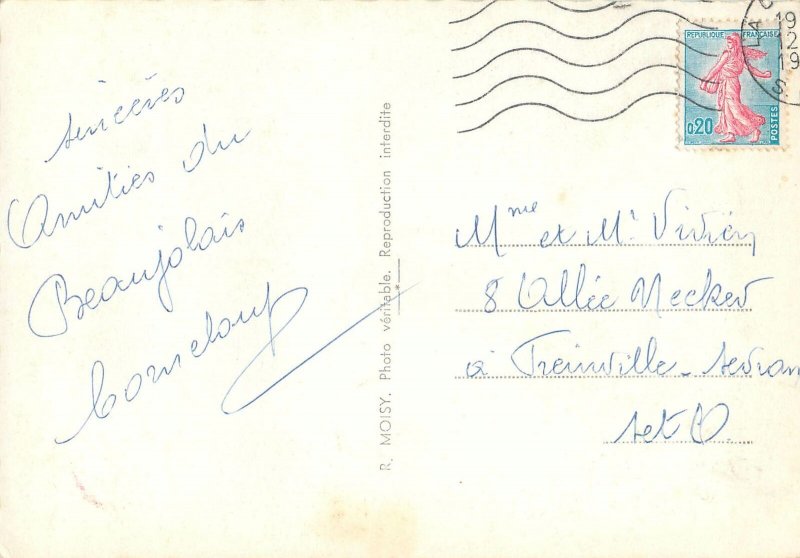 sincères
Amitiés du
Beaujolais
R. MOISY. Photo véritable. Reproduction interdite
RÉPUBLIQUE FRANÇAISE
0,20
POSTES
19
12
19
LA
S
Mme et Mr Vivien
8 Allée Necker
à Freinville - Sevran
S et O